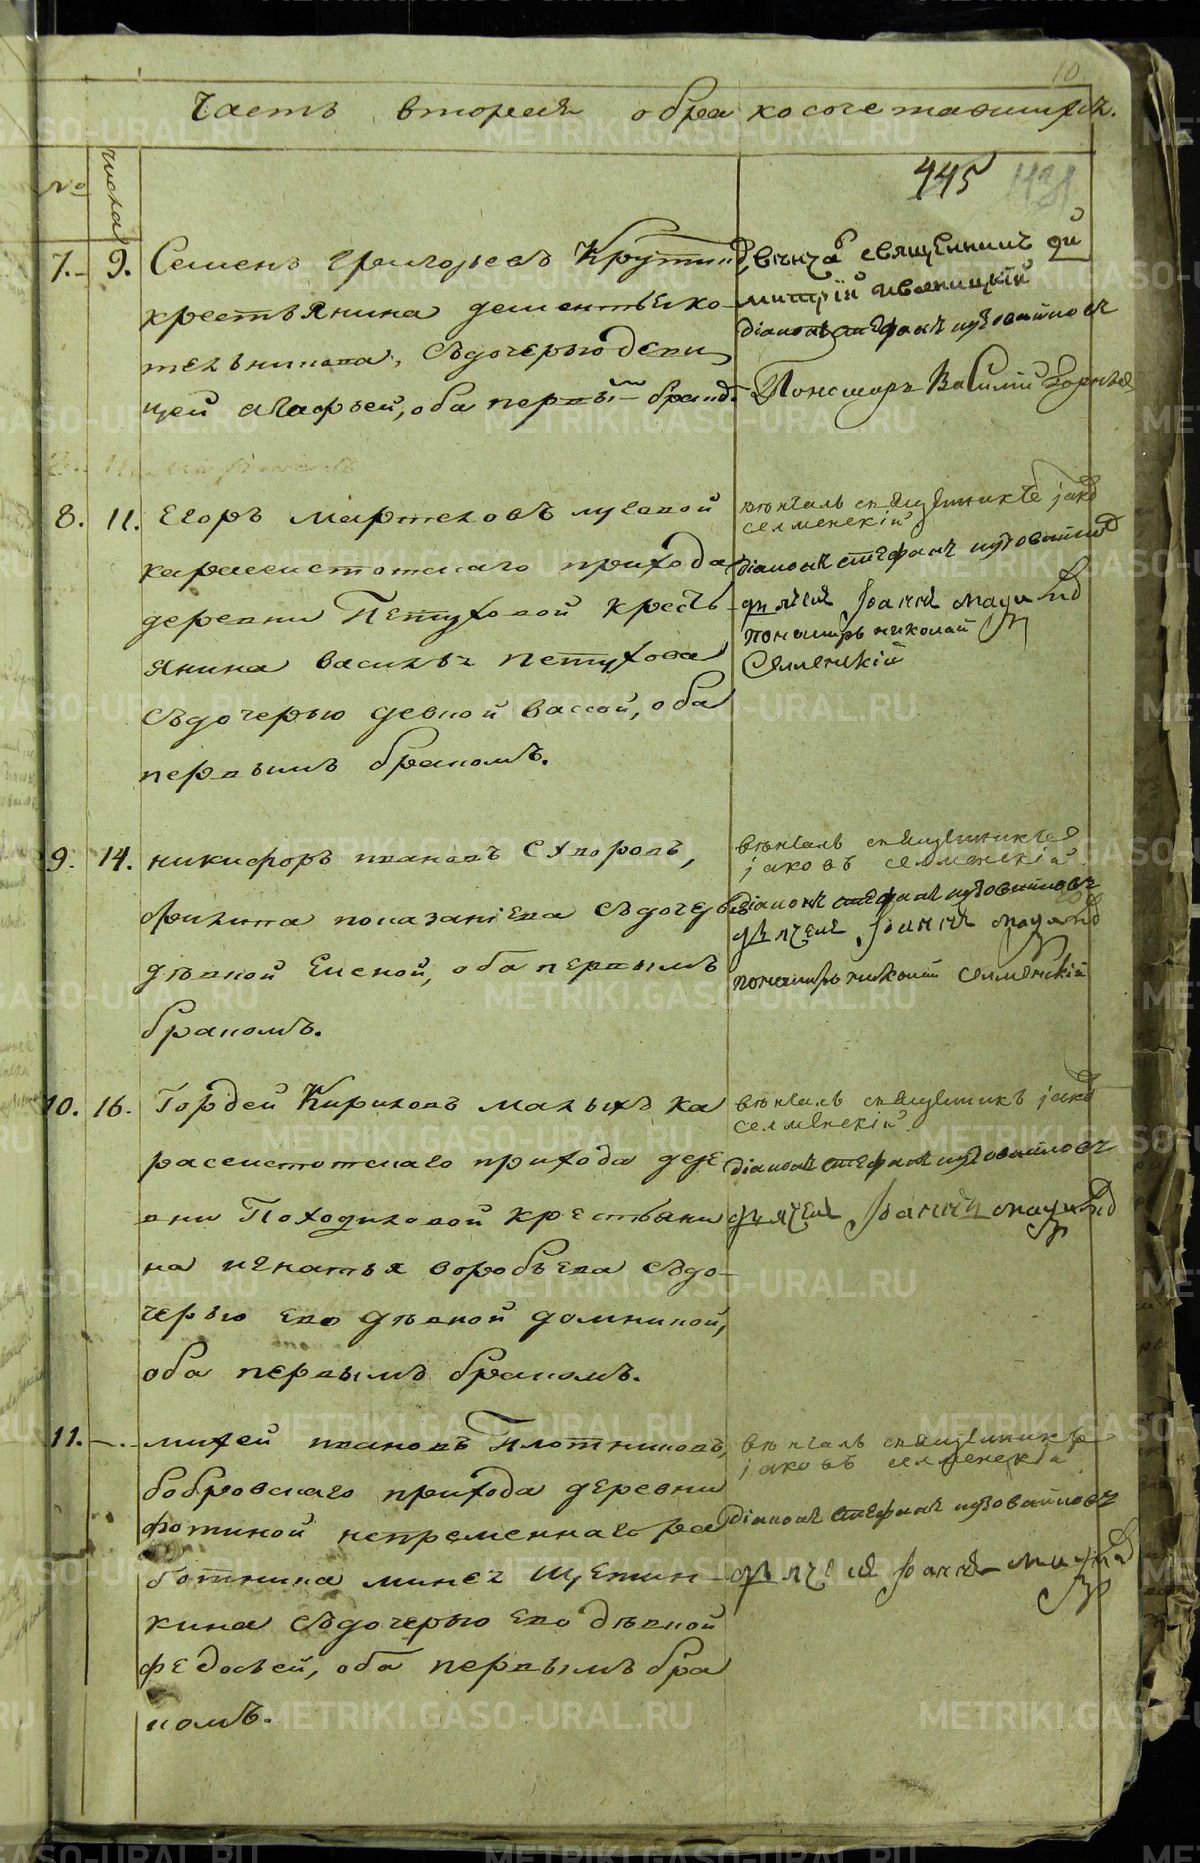 10
Часть вторая о бракосочетавшихся.
№ числа
445
7. 9. Семенъ Григорьевъ Крутин
крестьянина дементья ко-
тельникова, съдочерью деви
цей агафьей, оба первы- бракъ.
вѣнчалъ священникъ ди
митрій Иваницкій
діаконъ стефанъ
Пономарь Василій
8. 11. Егоръ Мартемовъ луговой
карасеистокскаго прихода
деревни Петуховой кресть-
янина василья петухова
съдочерью девкой вассой, оба
первымъ бракомъ.
вѣнчалъ священникъ іаковъ
селменскій
діаконъ стефанъ
дьячекъ Іоаннъ
пономарь николай
Селменскій
9. 14. никифоръ ивановъ Суворовъ,
филипа съдочерью
дѣвкой Еленой, оба первымъ
бракомъ.
вѣнчалъ священникъ
іаковъ селменскій
діаконъ стефанъ
дьячекъ Іоаннъ
пономарь николай селменскій
10. 16. Гордей Кириловъ малыхъ ка
расеистокскаго прихода дере
вни Походиловой крестьяни
на игнатья воробьева съдо-
черью ево дѣвкой домникой,
оба первымъ бракомъ.
вѣнчалъ священникъ іаковъ
селменскій
діаконъ стефанъ
дьячекъ Іоаннъ
11. - михей ивановъ Плотниковъ,
бобровскаго прихода деревни
фоминой непременнаго ра
ботника минея Щетин-
кина съдочерью ево дѣвкой
федосьей, оба первымъ бра
комъ.
вѣнчалъ священникъ
іаковъ селменскій
діаконъ стефанъ
дьячекъ Іоаннъ
METRIKI.GASO-URAL.RU